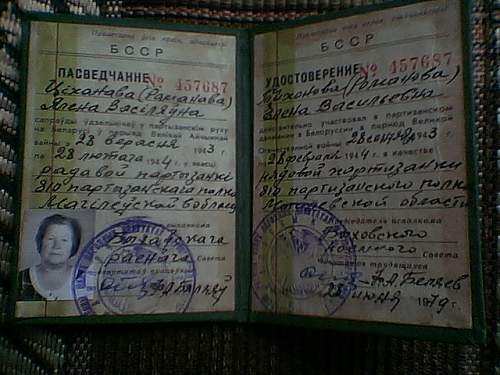 БССР
ПАСВЕДЧАННЕ № 457687
Ціханава (Раманава)
Алена Васільеўна
сапраўды ўдзельнічаў у партызанскім руху
на Беларусі ў перыяд Вялікай Айчыннай
вайны з 28 верасня 1943 г.
па 28 лютага 1944 г. у якасці
радавой партызанкі
810 партызанскага палка
Магілёўскай вобласці
Быхаўскага
Савета
БССР
УДОСТОВЕРЕНИЕ № 457687
Тихонова (Романова)
Елена Васильевна
действительно участвовал в партизанском
движении в Белоруссии в период Великой
Отечественной войны с 28 сентября 1943 г.
28 февраля 1944 г. в качестве
рядовой партизанки
810 партизанского полка
Могилевской области
Председатель исполкома
Быховского
районного Совета
депутатов трудящихся
А.А. Беляев
июня 1979 г.